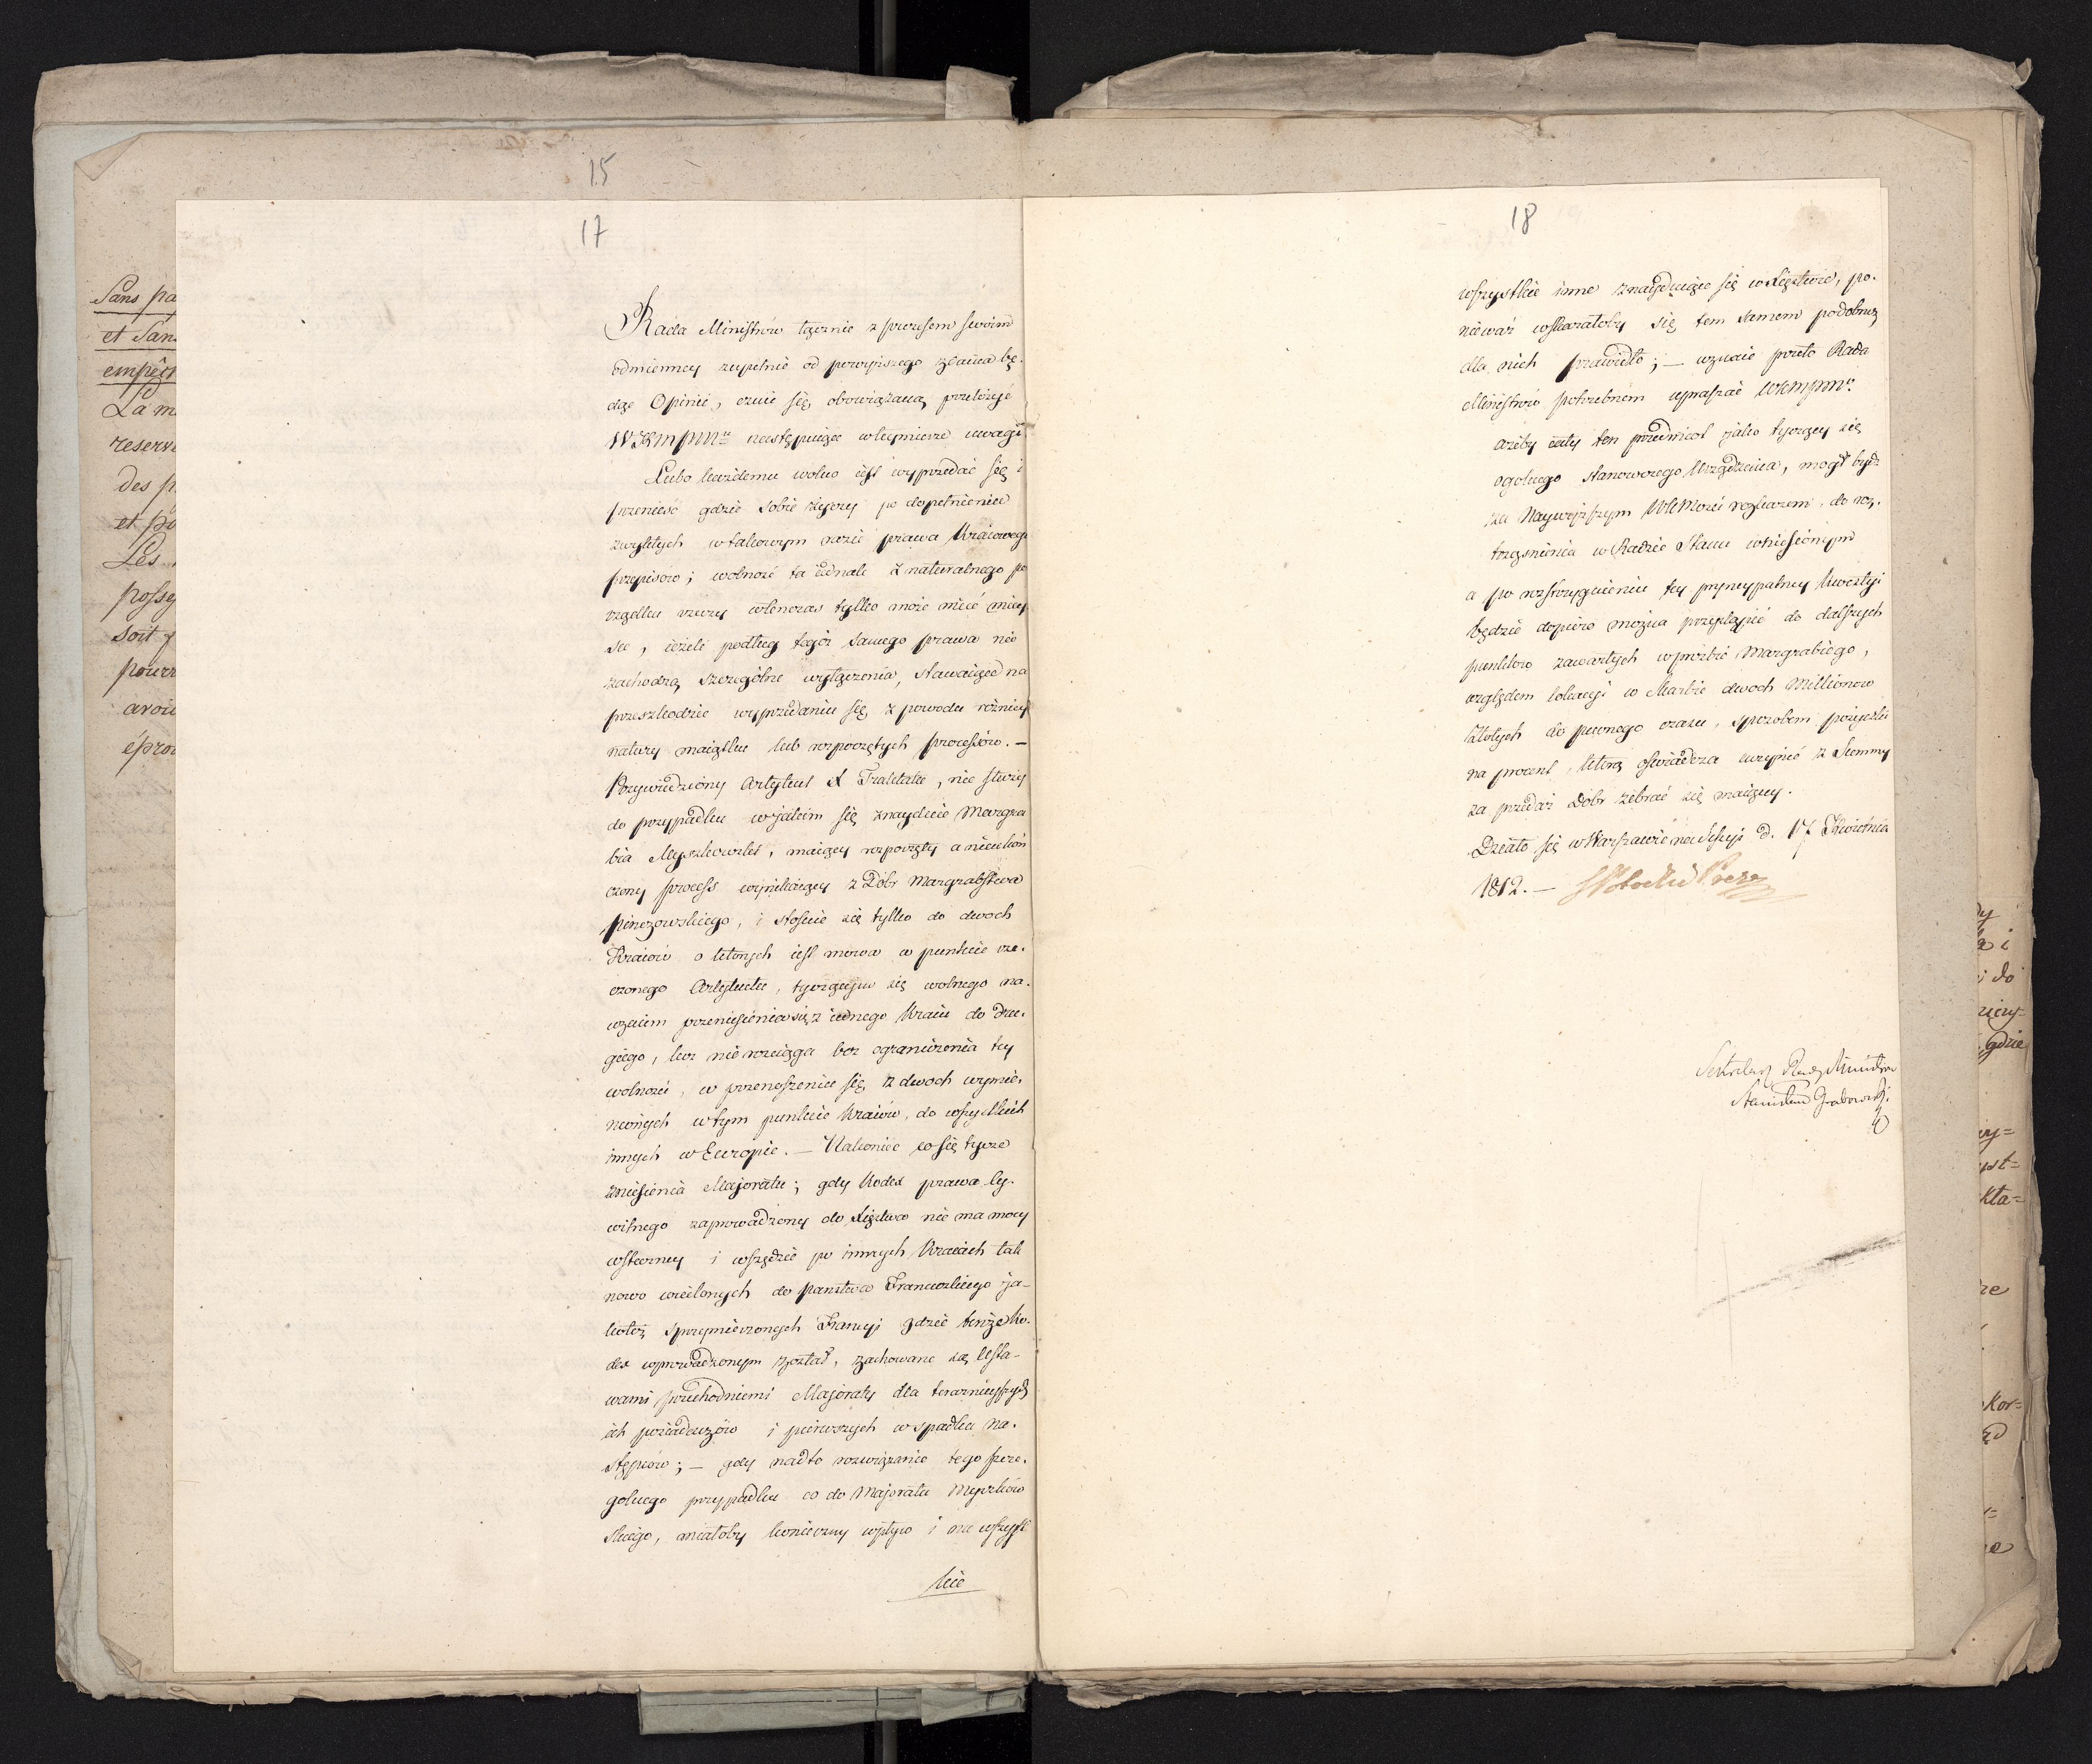 15
17
Sans pa
et San
empêc
La m
reserv
des p
et p
Les
posse
soit
pourr
avoi
épro
Rada Ministrów łącznie z prezesem swoim
odmienney zupełnie od powyższego zdania bę-
dąc Opinii, czuie się obowiązaną przełożyć
WKMPMu następuiące w tey mierze uwagi
Lubo każdemu wolno iest wyprzedać się i
przenieść gdzie sobie życzy po dopełnieniu
zwykłych w takowym razie prawa Kraiowego
przepisow; wolność ta iednak z naturalnego po
rządku rzeczy wtenczas tylko może mieć miey
sce, ieżeli podług tegoż samego prawa nie
zachodzą szczególne wyłączenia, stawaiące na
przeszkodzie wyprzedaniu się z powodu różnicy
natury maiątku lub rozpoczętych processów. –
Przywiedziony Artykuł X Traktatu, nie służy
do przypadku w jakim się znayduie Margra
bia Myszkowski, maiący rozpoczęty a nieukoń
czony process wynikaiący z Dóbr Margrabstwa
Pinczowskiego, i stosuie się tylko do dwoch
Kraiów o których iest mowa w punkcie rze-
czonego Artykułu, tyczącym się wolnego na-
wzaiem przeniesienia się z iednego Kraiu do dru-
giego, lecz nie rozciąga bez ograniczenia tey
wolności, w przenoszeniu się z dwoch wymie-
nionych w tym punkcie Kraiów, do wszystkich
innych w Europie. – Nakoniec co się tycze
zniesienia Majoratu; gdy Kodex prawa Cy-
wilnego zaprowadzony do Xięztwa nie ma mocy
wsteczney i wszędzie po innych Kraiach tak
nowo wcielonych do państwa Francuzkiego ja-
koteż sprzymierzonych Francyi gdzie tenże Ko-
dex wprowadzonym został, zachowane są Usta-
wami przechodniemi Majoraty dla teraznieyszych
ich posiadaczów i pierwszych w spadku na-
stępców; – gdy nadto rozwiązanie tego szcze-
gólnego przypadku co do Majoratu Myszków
skiego, miałoby konieczny wpływ i na wszyst
kie
18
wszystkie inne znayduiące się w Xięztwie, po-
nieważ wskazałoby się tem samem podobneż
dla nich prawidło; – uznaie przeto Rada
Ministrów potrzebnem upraszać WKMPMo
ażeby cały ten przedmiot jako tyczący się
ogolnego stanowczego Urządzenia, mogł bydź
za Naywyższym WKMości rozkazem, do roz-
trząsnienia w Radzie Stanu wniesionym
a po rozstrzygnieniu tey pryncypalney kwestyi
będzie dopiero można przystąpić do dalszych
punktow zawartych w prośbie Margrabiego,
względem lokacyi w Skarbie dwoch Millionow
złotych do pewnego czasu, sposobem pożyczki
na procent, którą oświadcza uczynić z Summy
za przedaż Dóbr zebrać się maiącey.
Działo się w Warszawie na Sessyi d. 17 Kwietnia
1812. – SPotocki Prezes
Sekretarz Rady Ministrów
Stanisław Grabowski
i do
gdzie
kta=
Kor=